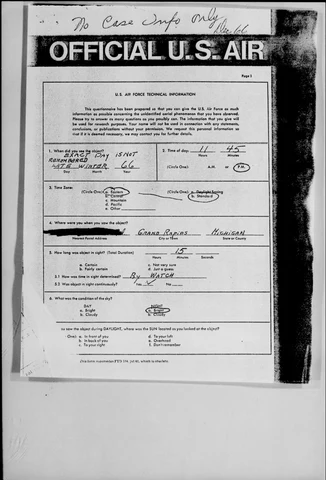 No Case Info Only
Dec 66
OFFICIAL U.S. AIR
Page 1
U.S. AIR FORCE TECHNICAL INFORMATION
This questionnaire has been prepared so that you can give the U.S. Air Force as much
information as possible concerning the unidentified aerial phenomenon that you have observed.
Please try to answer as many questions as you possibly can. The information that you give will
be used for research purposes. Your name will not be used in connection with any statements,
conclusions, or publications without your permission. We request this personal information so
that if it is deemed necessary, we may contact you for further details.
1. When did you see the object?
EXACT DAY IS NOT
REMEMBERED
LATE WINTER 66
Day Month Year
2. Time of day: 11 45
Hours Minutes
(Circle One): A.M. or P.M.
3. Time Zone:
(Circle One): a. Eastern
b. Central
c. Mountain
d. Pacific
e. Other
(Circle One): a. Daylight Saving
b. Standard
4. Where were you when you saw the object?
GRAND RAPIDS MICHIGAN
Nearest Postal Address City or Town State or County
5. How long was object in sight? (Total Duration) 15
Hours Minutes Seconds
a. Certain c. Not very sure
b. Fairly certain d. Just a guess
5.1 How was time in sight determined? BY WATCH
5.2 Was object in sight continuously? Yes ✓ No
6. What was the condition of the sky?
DAY NIGHT
a. Bright a. Bright
b. Cloudy b. Cloudy
you saw the object during DAYLIGHT, where was the SUN located as you looked at the object?
One): a. In front of you d. To your left
b. In back of you e. Overhead
c. To your right f. Don't remember